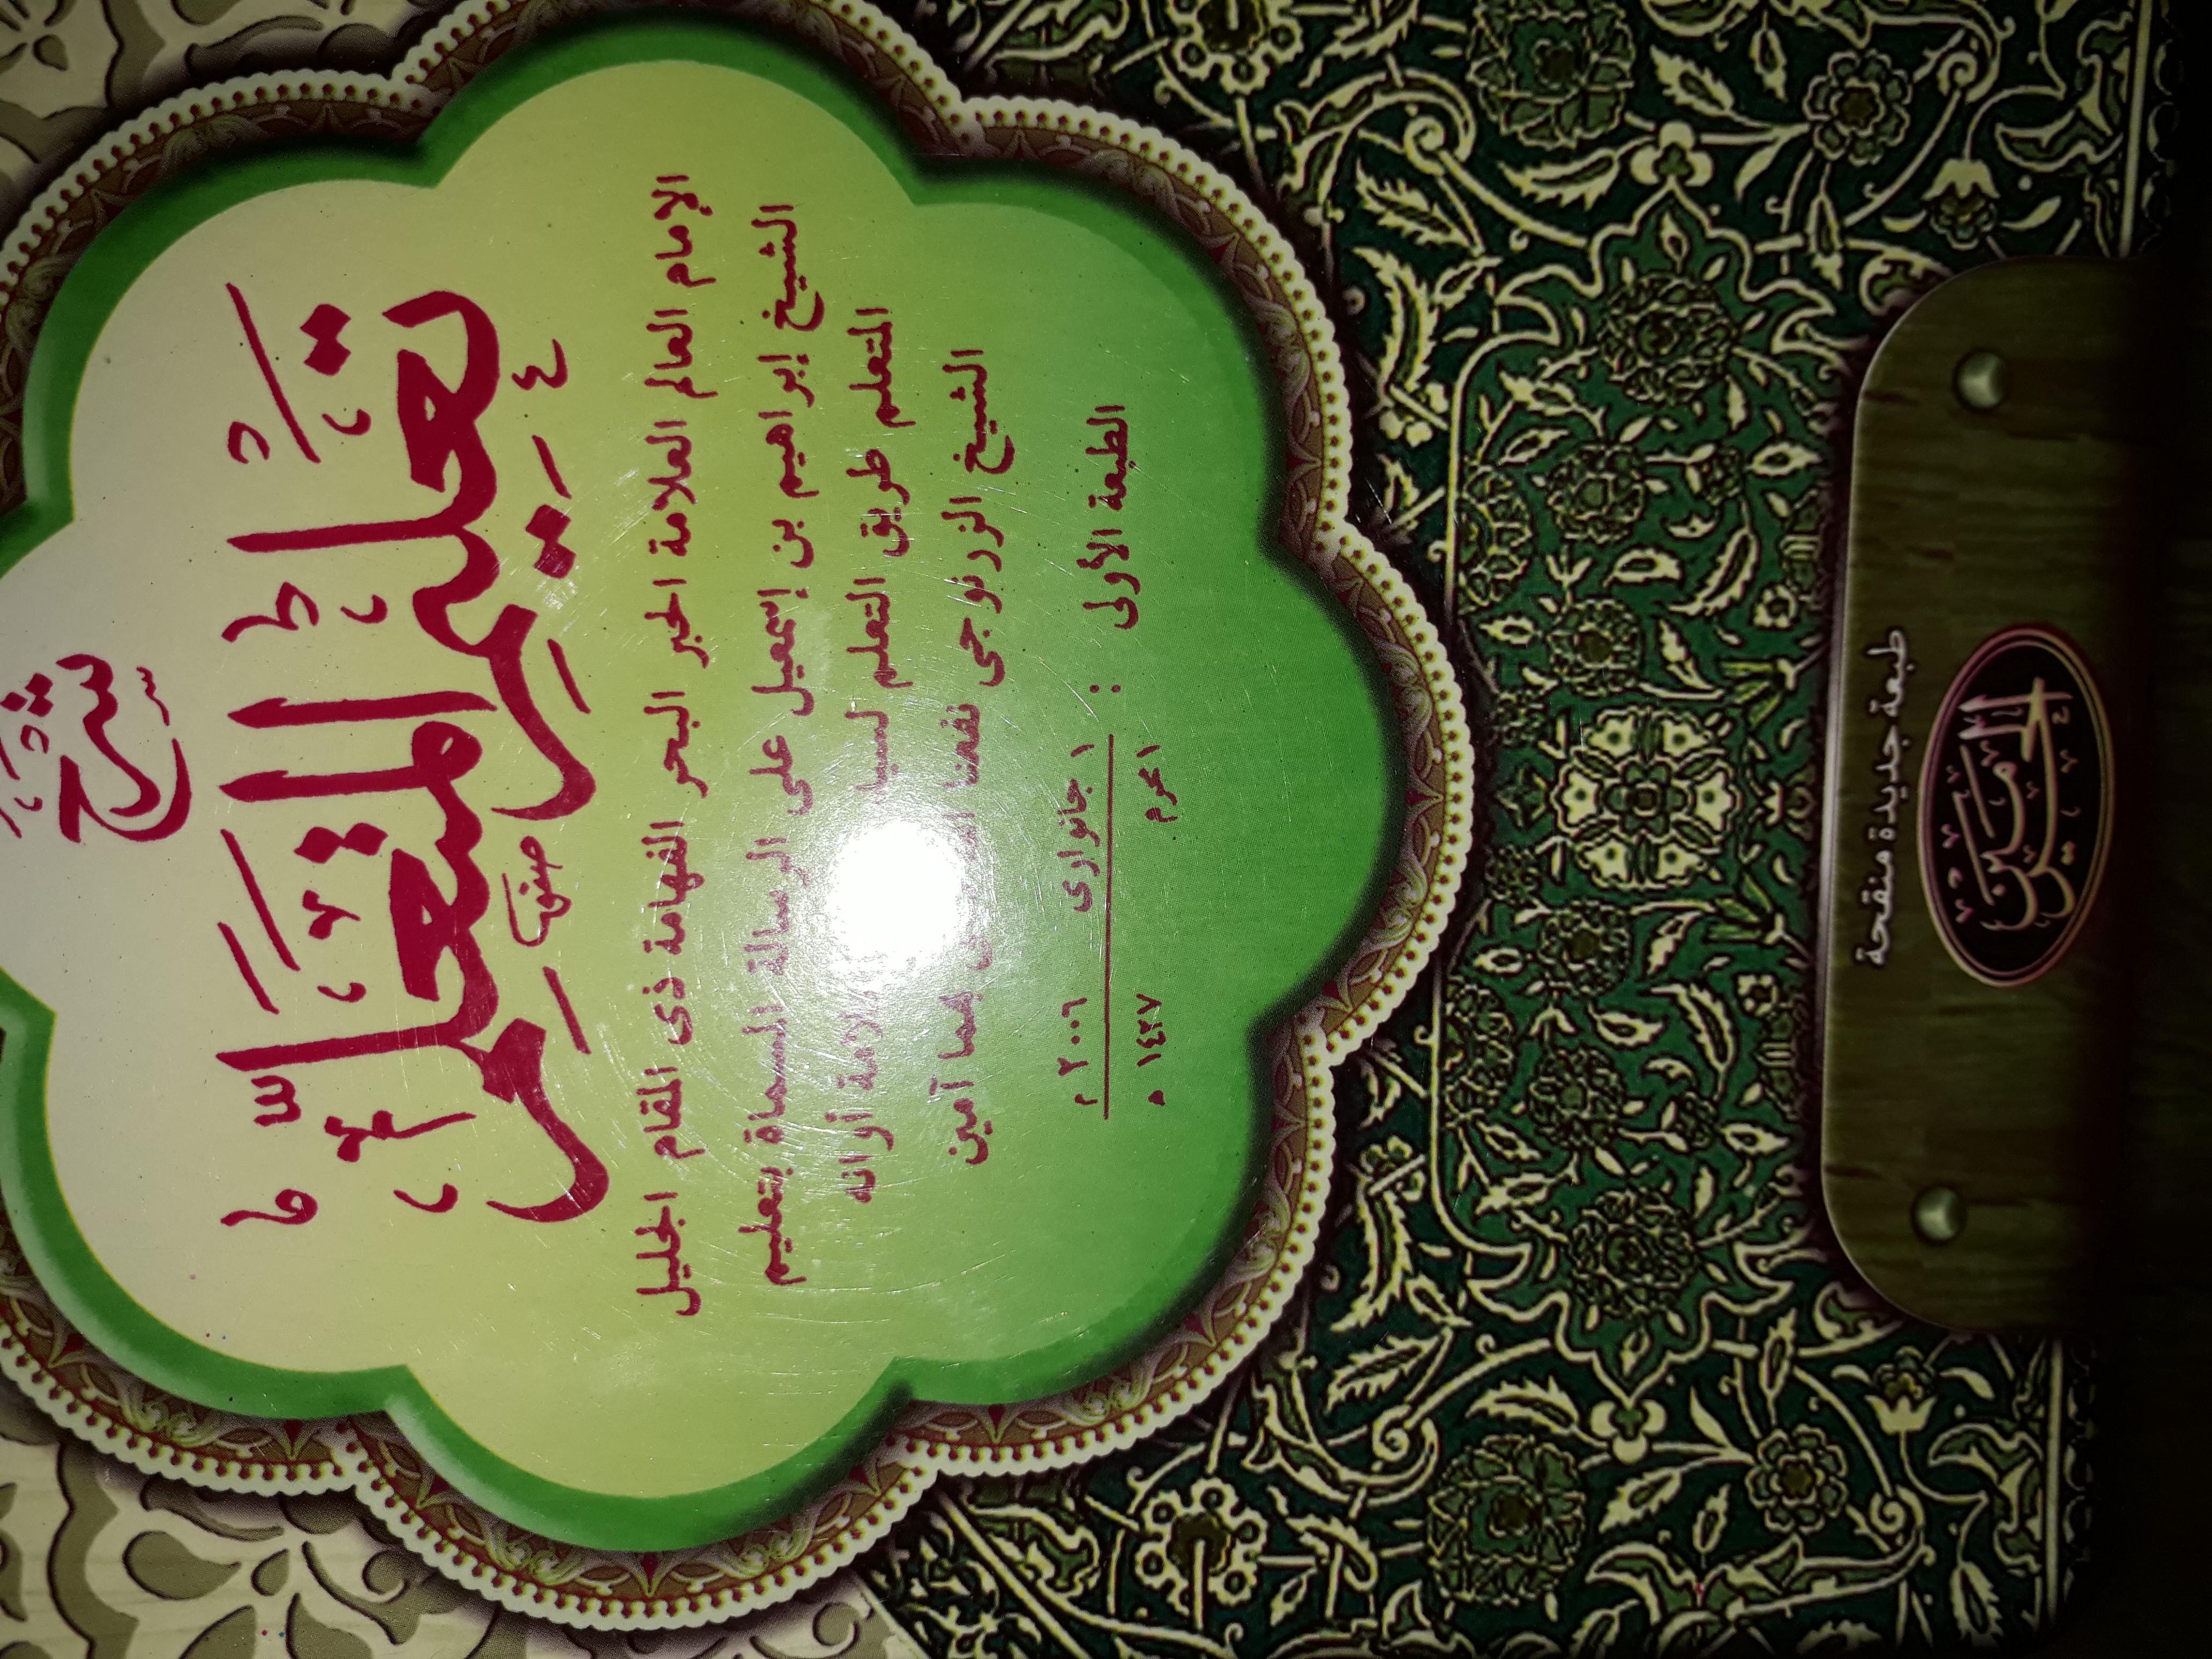 شرح
تعليم المتعلم
صنفه
الإمام العالم العلامة الحبر البحر الفهامة ذى المقام الجليل
الشيخ إبراهيم بن إسمعيل على الرسالة المسماة بتعليم
المتعلم طريق التعلم أوانه
الشيخ الزرنوجى نفعنا بهما آمين
الطبعة الأولى : ١ جانوارى ٢٠٠٦ م
١ محرم ١٤٢٧ ه
طبعة جديدة منقحة
الحرمين